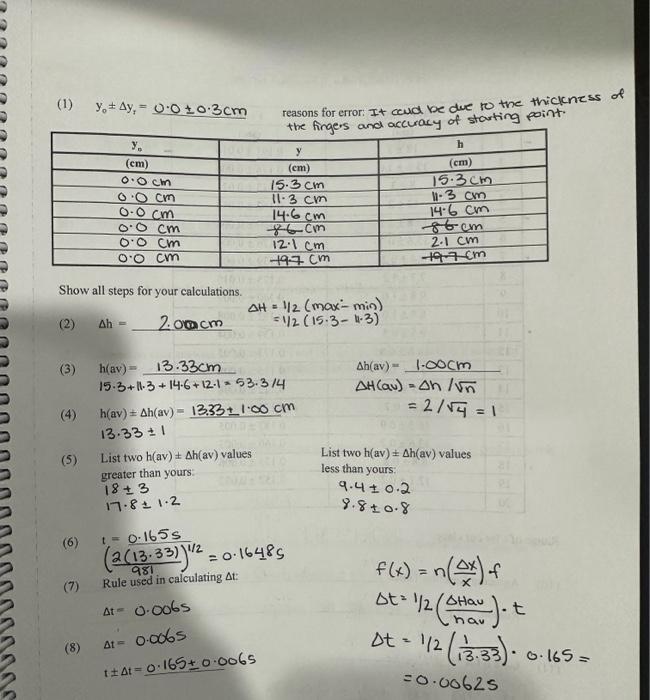 (1) y₀ ± Δyᵣ = 0.0 ± 0.3cm reasons for error: It could be due to the thickness of
the fingers and accuracy of starting point.
y₀ y h
(cm) (cm) (cm)
0.0 cm 15.3 cm 15.3 cm
0.0 cm 11.3 cm 11.3 cm
0.0 cm 14.6 cm 14.6 cm
0.0 cm 8.6 cm 8.6 cm
0.0 cm 12.1 cm 2.1 cm
0.0 cm 19.7 cm 19.7 cm
Show all steps for your calculations.
ΔH = 1/2 (max - min)
(2) Δh = 2.00cm = 1/2 (15.3 - 11.3)
(3) h(av) = 13.33cm Δh(av) = 1.00cm
15.3+11.3+14.6+12.1 = 53.3/4 ΔH(av) = Δh /√n
(4) h(av) ± Δh(av) = 13.33 ± 1.00 cm = 2/√4 = 1
13.33 ± 1
(5) List two h(av) ± Δh(av) values List two h(av) ± Δh(av) values
greater than yours: less than yours:
18 ± 3 9.4 ± 0.2
17.8 ± 1.2 8.8 ± 0.8
(6) t = 0.165s
(2(13.33)/981)^1/2 = 0.1648s f(x) = n(Δx/x) f
(7) Rule used in calculating Δt:
Δt = 0.006s Δt = 1/2 (ΔHav/hav) · t
(8) Δt = 0.006s Δt = 1/2 (1/13.33) · 0.165 =
t ± Δt = 0.165 ± 0.006s = 0.0062s